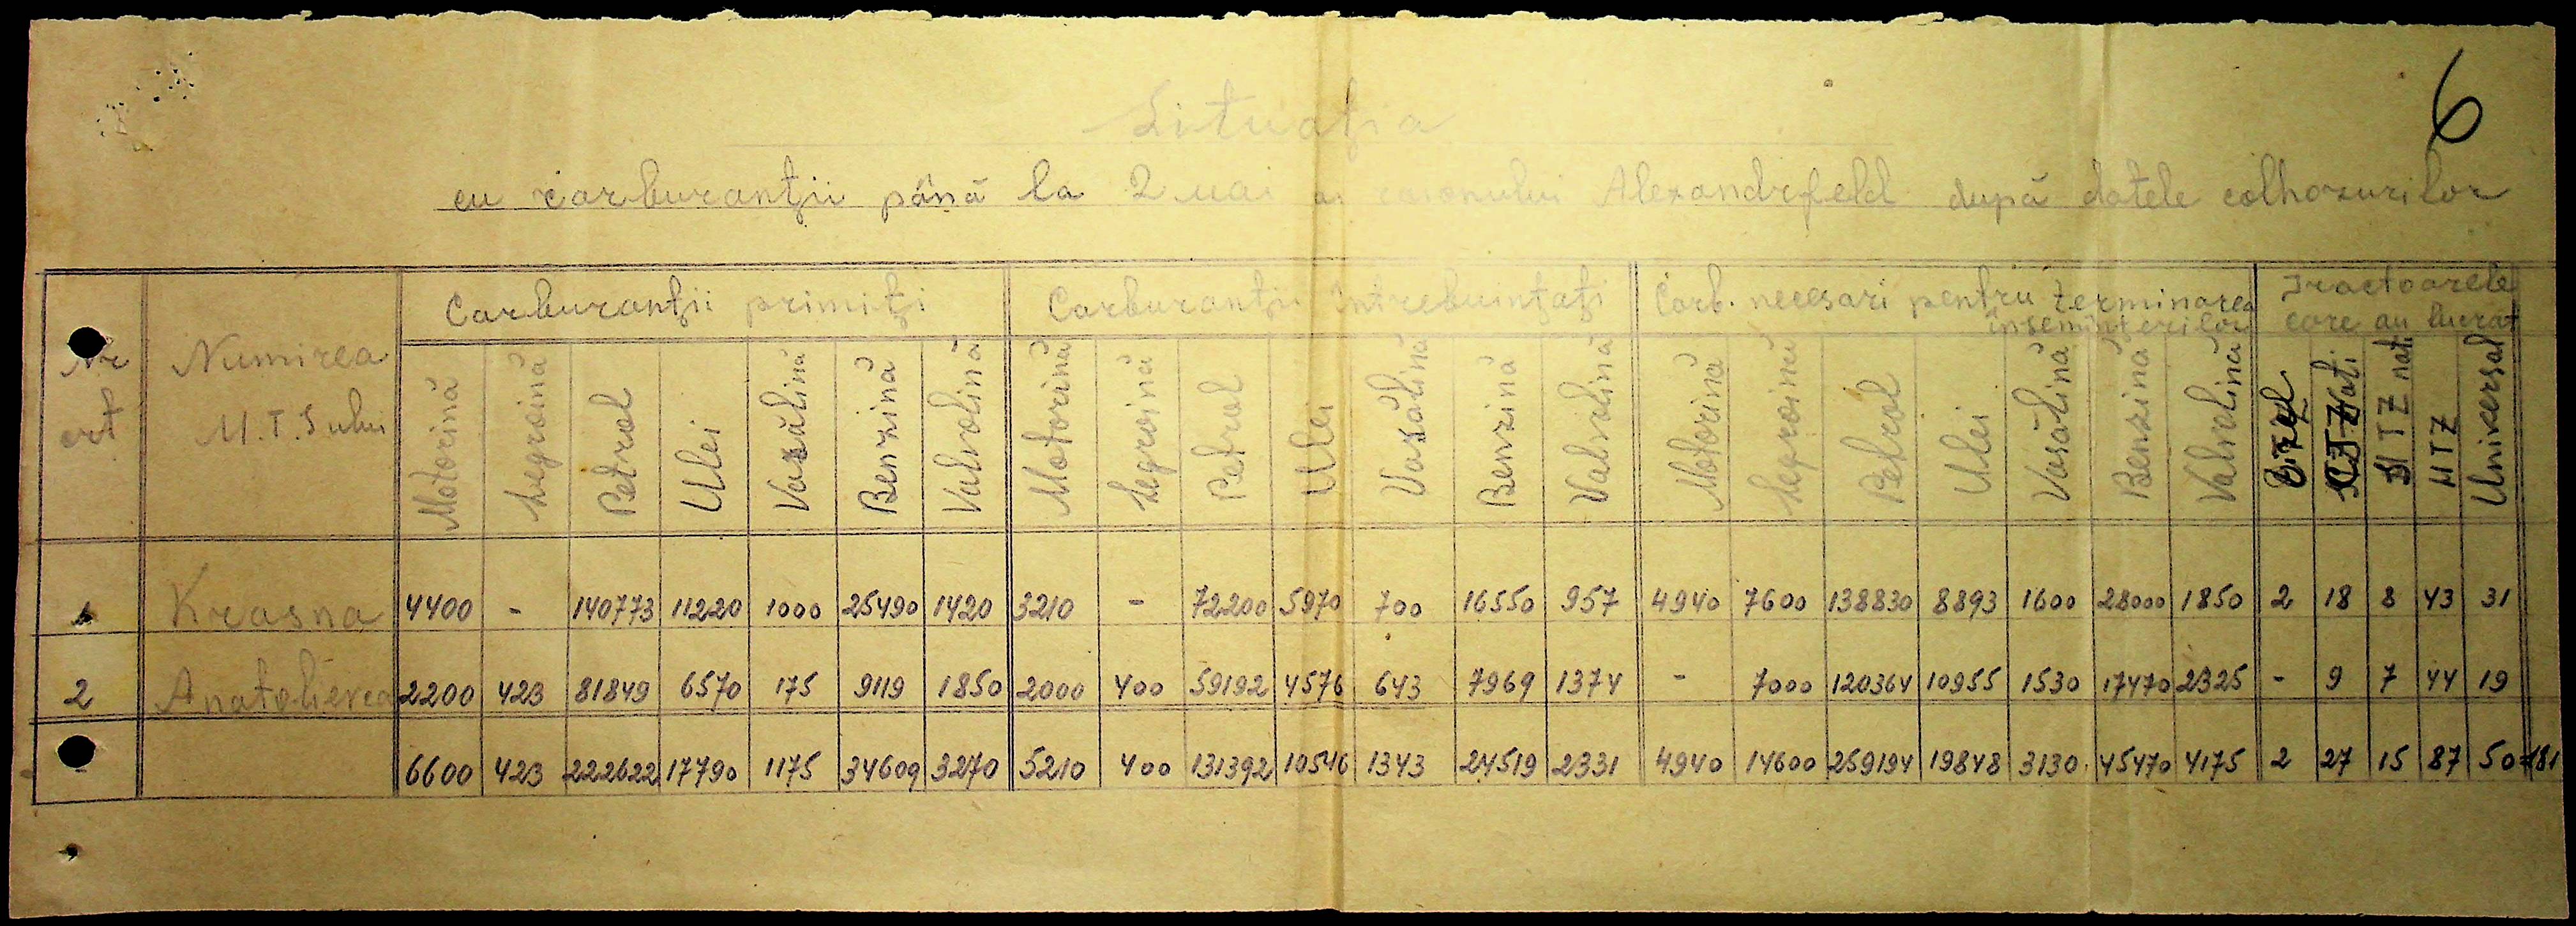 6
Situația
cu carburanții până la 2 mai al raionului Alexandrfeld după datele colhozurilor
Nr crt | Numirea M.T.S ului | Carburanții primiți | Carburanții întrebuințați | Carb. necesari pentru terminarea însemințerilor | Tractoarele care au lucrat
Motorină | Legroină | Petrol | Ulei | Vazălină | Benzină | Valvolină | Motorină | Legroină | Petrol | Ulei | Vazălină | Benzină | Valvolină | Motorină | Legroină | Petrol | Ulei | Vasălină | Benzină | Valvolină | Dizel | nati | nati | HTZ | Universal
1 | Krasna | 4400 | - | 140773 | 11220 | 1000 | 25490 | 1420 | 3210 | - | 72200 | 5970 | 700 | 16550 | 957 | 4940 | 7600 | 138830 | 8893 | 1600 | 28000 | 1850 | 2 | 18 | 8 | 43 | 31
2 | Anatolievca | 2200 | 423 | 81849 | 6570 | 175 | 9119 | 1850 | 2000 | 400 | 59192 | 4576 | 643 | 7969 | 1374 | - | 7000 | 120364 | 10955 | 1530 | 17470 | 2325 | - | 9 | 7 | 44 | 19
6600 | 423 | 222622 | 17790 | 1175 | 34609 | 3270 | 5210 | 400 | 131392 | 10546 | 1343 | 24519 | 2331 | 4940 | 14600 | 259194 | 19848 | 3130 | 45470 | 4175 | 2 | 27 | 15 | 87 | 50 =181